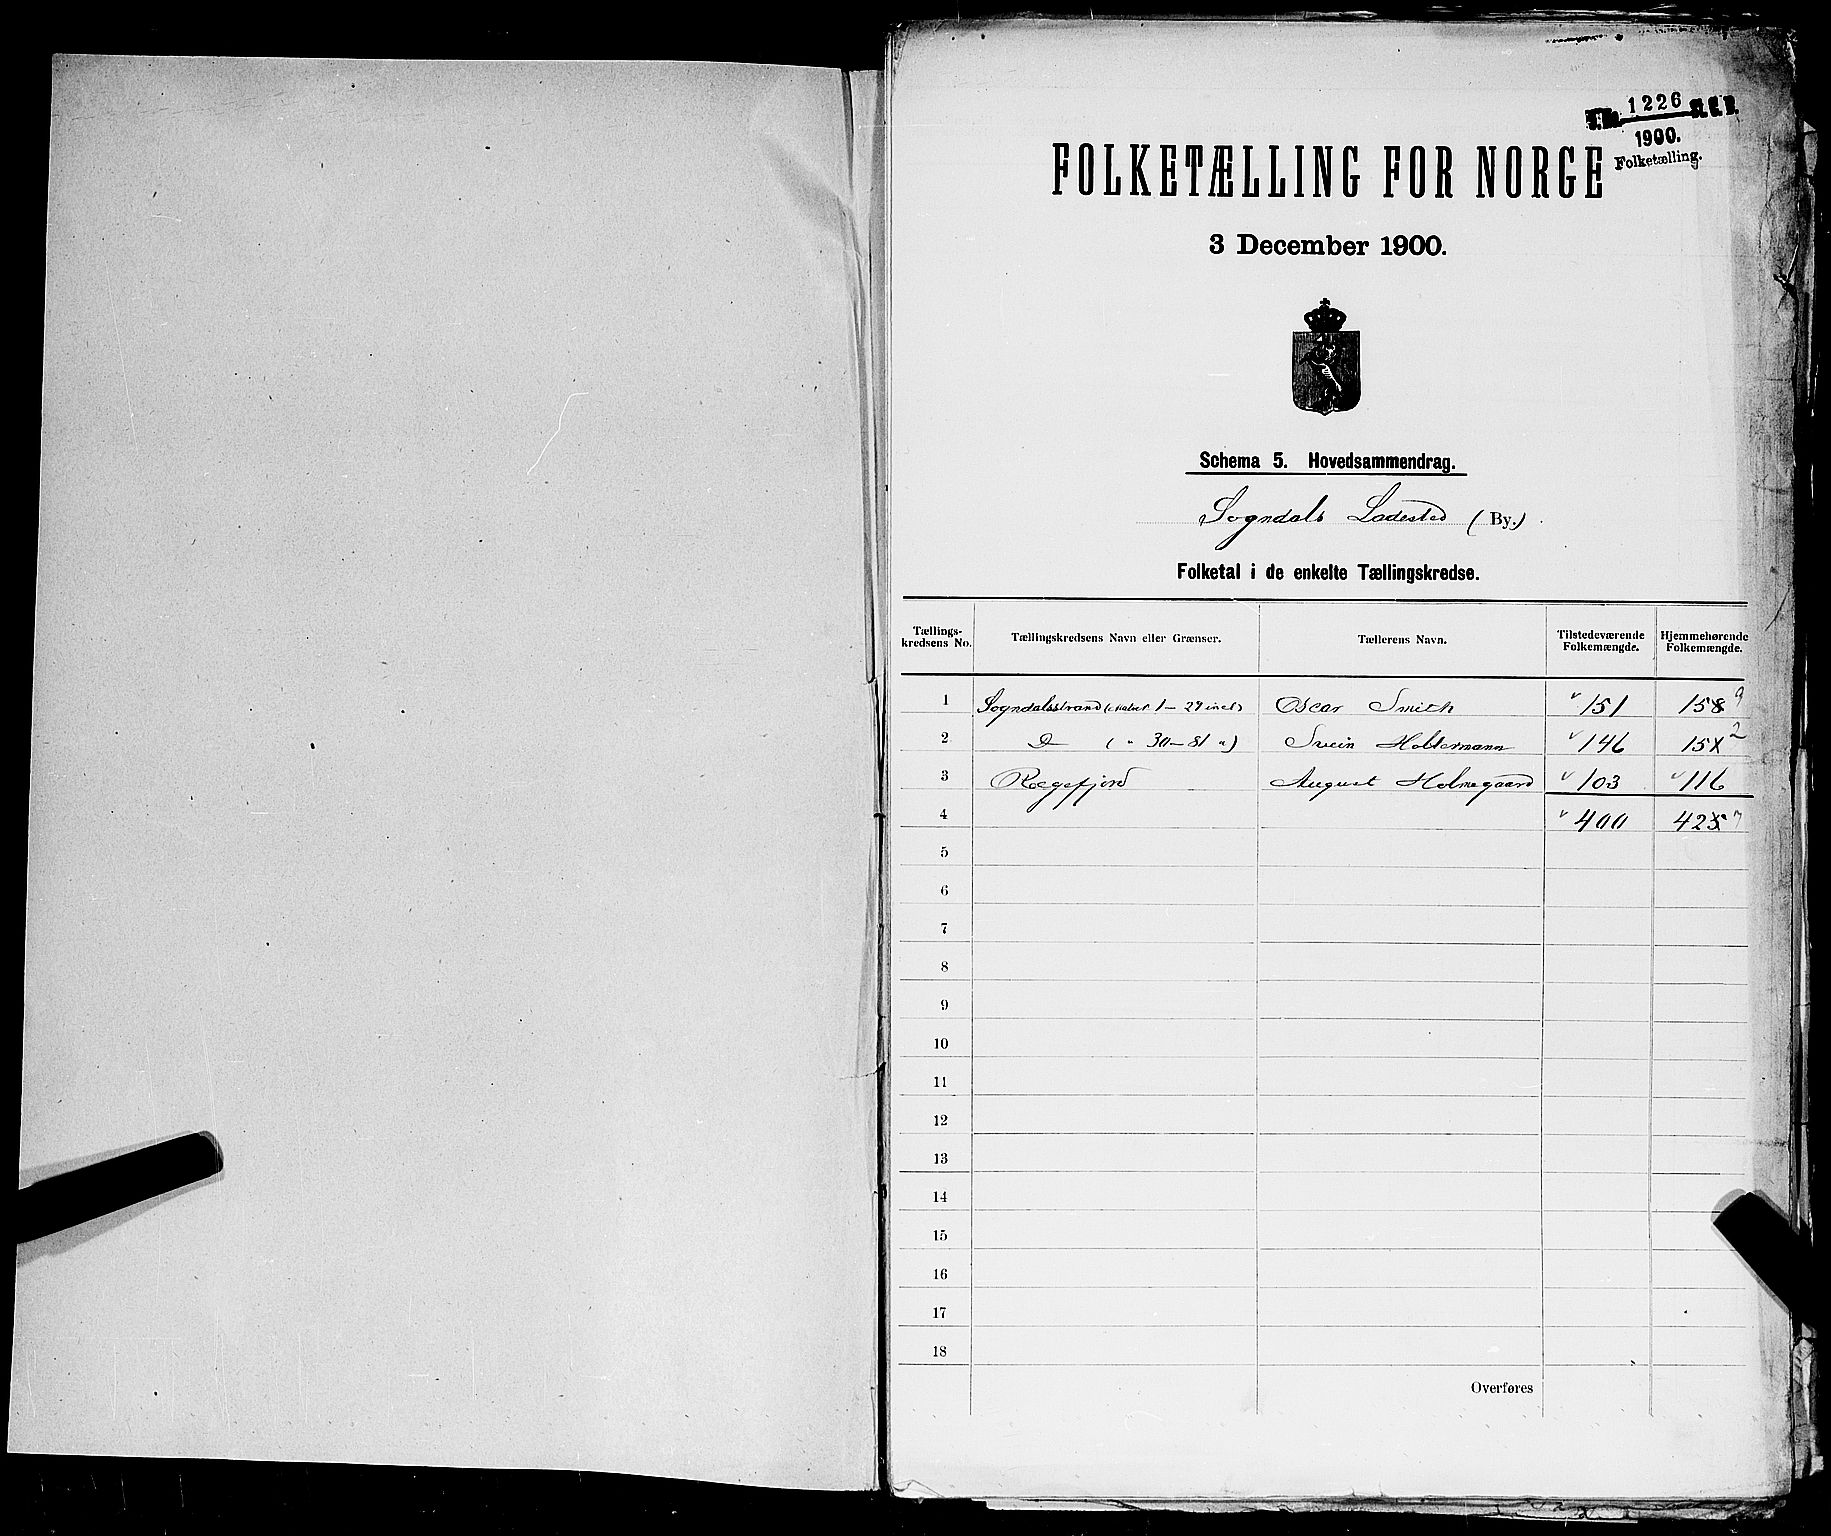 1226
1900.
Folketælling.
FOLKETÆLLING FOR NORGE
3 December 1900.
Schema 5. Hovedsammendrag.
Sogndals Ladested (By.)
Folketal i de enkelte Tællingskredse.
Tællings-kredsens No. Tællingskredsens Navn eller Grænser. Tællerens Navn. Tilstedeværende Folkemængde. Hjemmehørende Folkemængde.
1 Sogndalsstrand ( 1 – 29 incl) Oscar Smith 151 158 9
2 Do ( " 30 – 81 ") Svein Holtermann 146 151 2
3 Rægefjord August Holmegaard 103 116
4 400 425 7
5
6
7
8
9
10
11
12
13
14
15
16
17
18
Overføres